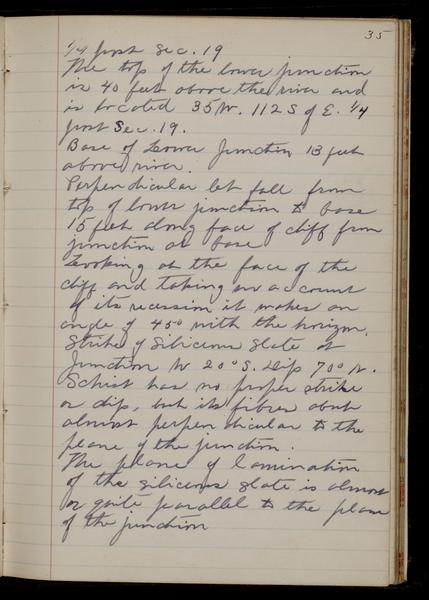 35
1/4 post Sec. 19
The top of the lower junction
is 40 feet above the river and
is located 35 W. 112 S of E. 1/4
post Sec. 19.
Base of Lower Junction 13 feet
above river.
Perpendicular let fall from
top of lower junction to base
15 feet along face of cliff from
junction at base
Looking at the face of the
cliff and taking no account
of its recession it makes an
angle of 45° with the horizon.
Strike of Siliceous Slate at
Junction W 20° S. Dip 70° N.
Schist has no proper strike
or dip, but its fibres abut
almost perpendicular to the
plane of the junction
The plane of lamination
of the siliceous slate is almost
or quite parallel to the plane
of the junction